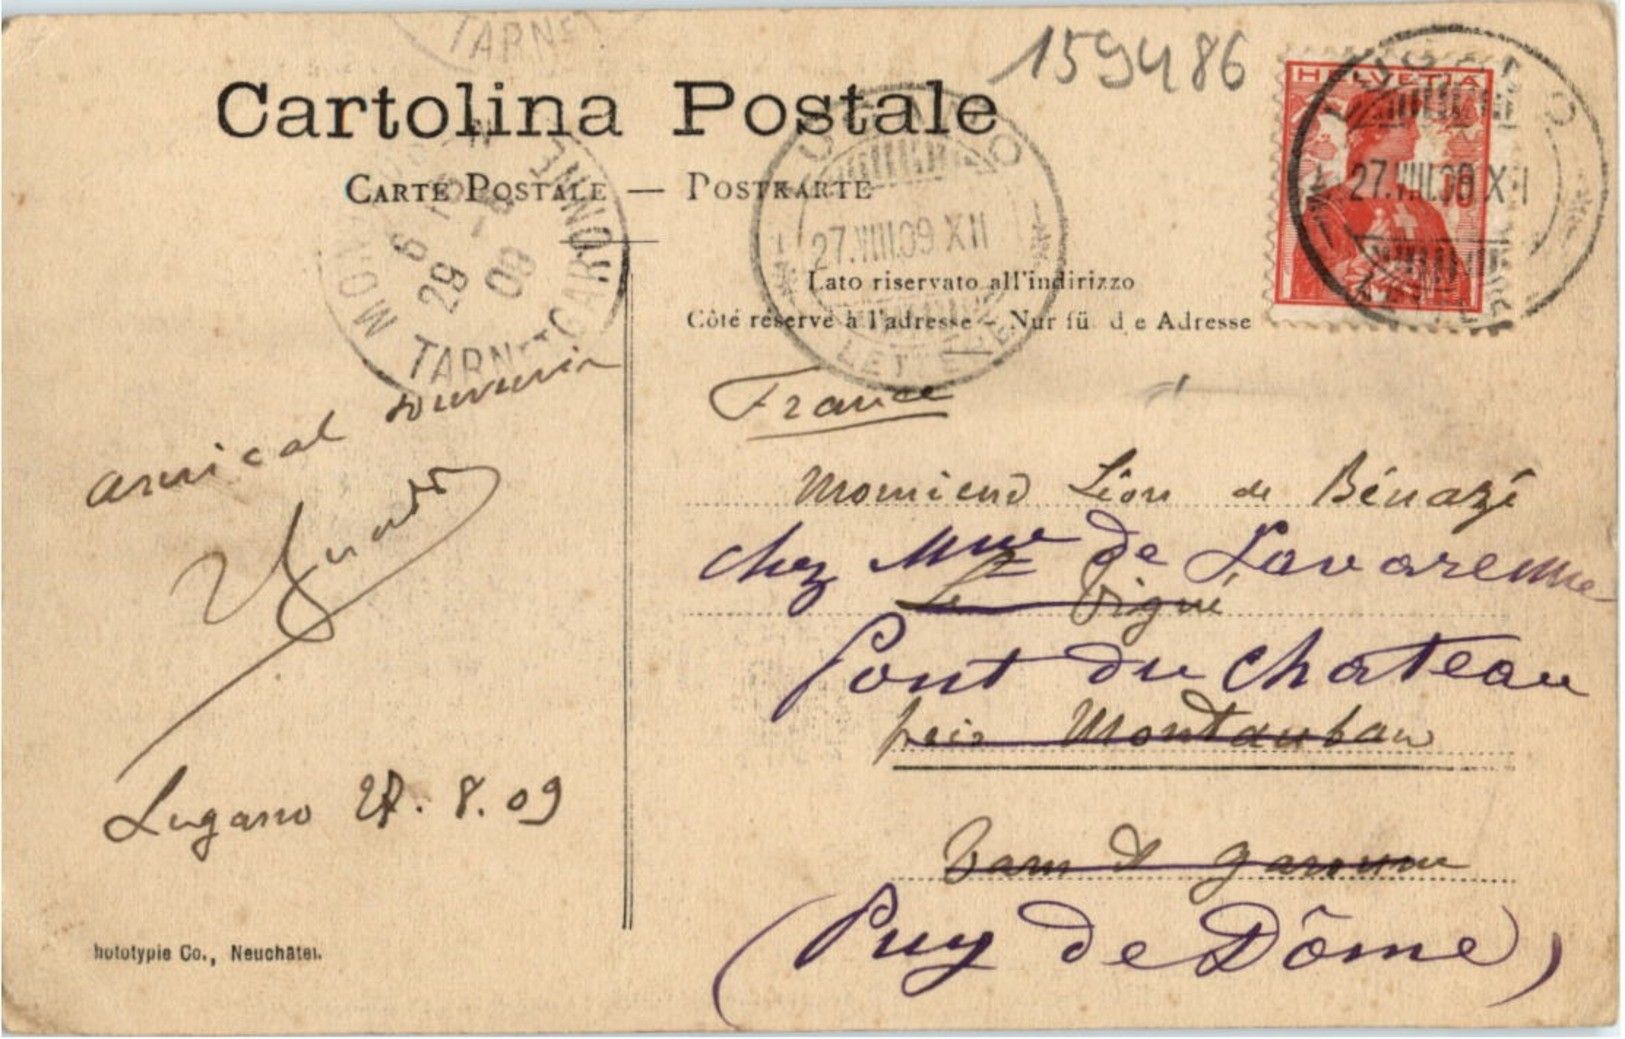 159486
Cartolina Postale
CARTE POSTALE — POSTKARTE
Lato riservato all'indirizzo
Côté réservé à l'adresse – Nur fü d e Adresse
HELVETIA
LUGANO
27.VIII.09 XII
LETTERE
LUGANO
27.VIII.09 XII
LETTERE
TARN ET
TARN ET GARONNE
6
29 - 8
09
amical souvenir
Lugano 27.8.09
France
Monsieur Léon de Bénazé
chez Mme de Lavarenne
Le
Pont du Chateau
près Montauban
Tarn et garonne
(Puy de Dôme)
hototypie Co., Neuchâtel.